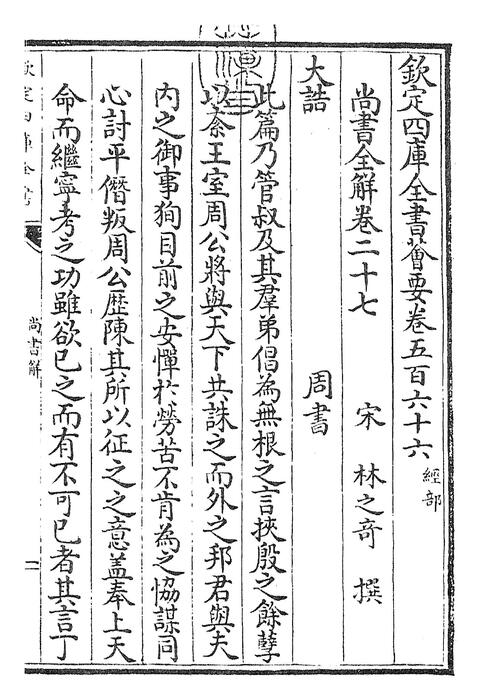 欽定四庫全書薈要卷五百六十六 經部
尚書全解卷二十七 宋 林之奇 撰
大誥 周書
此篇乃管叔及其羣弟倡為無根之言挾殷之餘孽
以紊王室周公將與天下共誅之而外之邦君與夫
内之御事狥目前之安憚於勞苦不肯為之恊謀同
心討平僭叛周公歴陳其所以征之之意盖奉上天
命而繼寧考之功雖欲已之而有不可已者其言丁
欽定四庫全書
尚書解
一